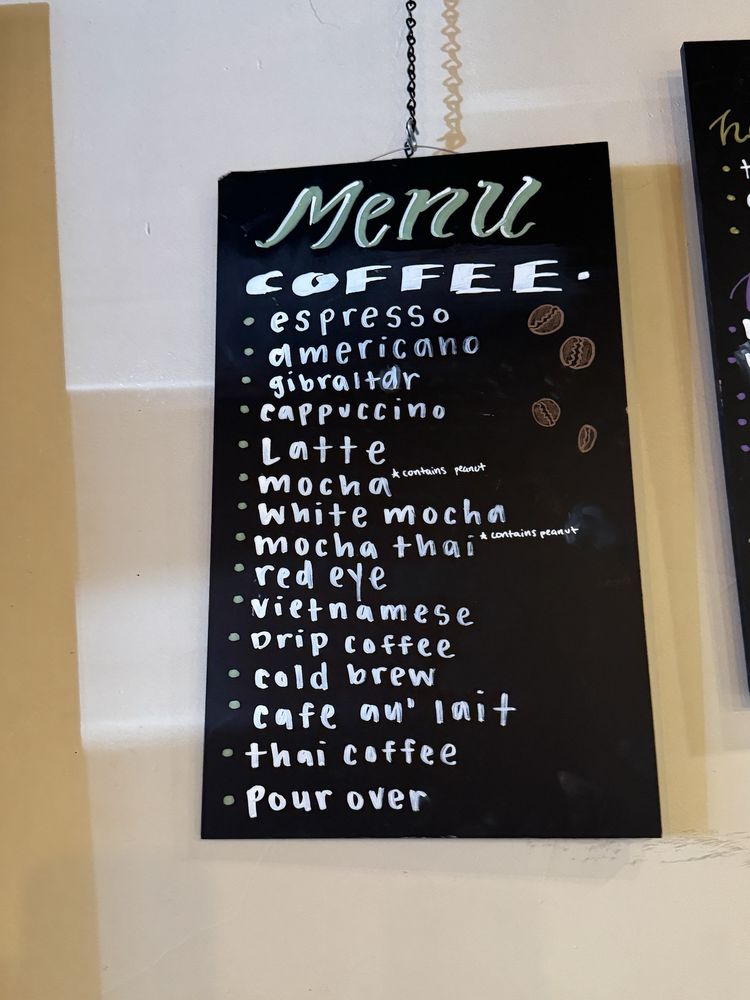 Menu
COFFEE.
• espresso
• americano
• gibraltar
• cappuccino
• Latte
• mocha *contains peanut
• white mocha
• mocha thai *contains peanut
• red eye
• vietnamese
• Drip coffee
• cold brew
• cafe au' lait
• thai coffee
• Pour over